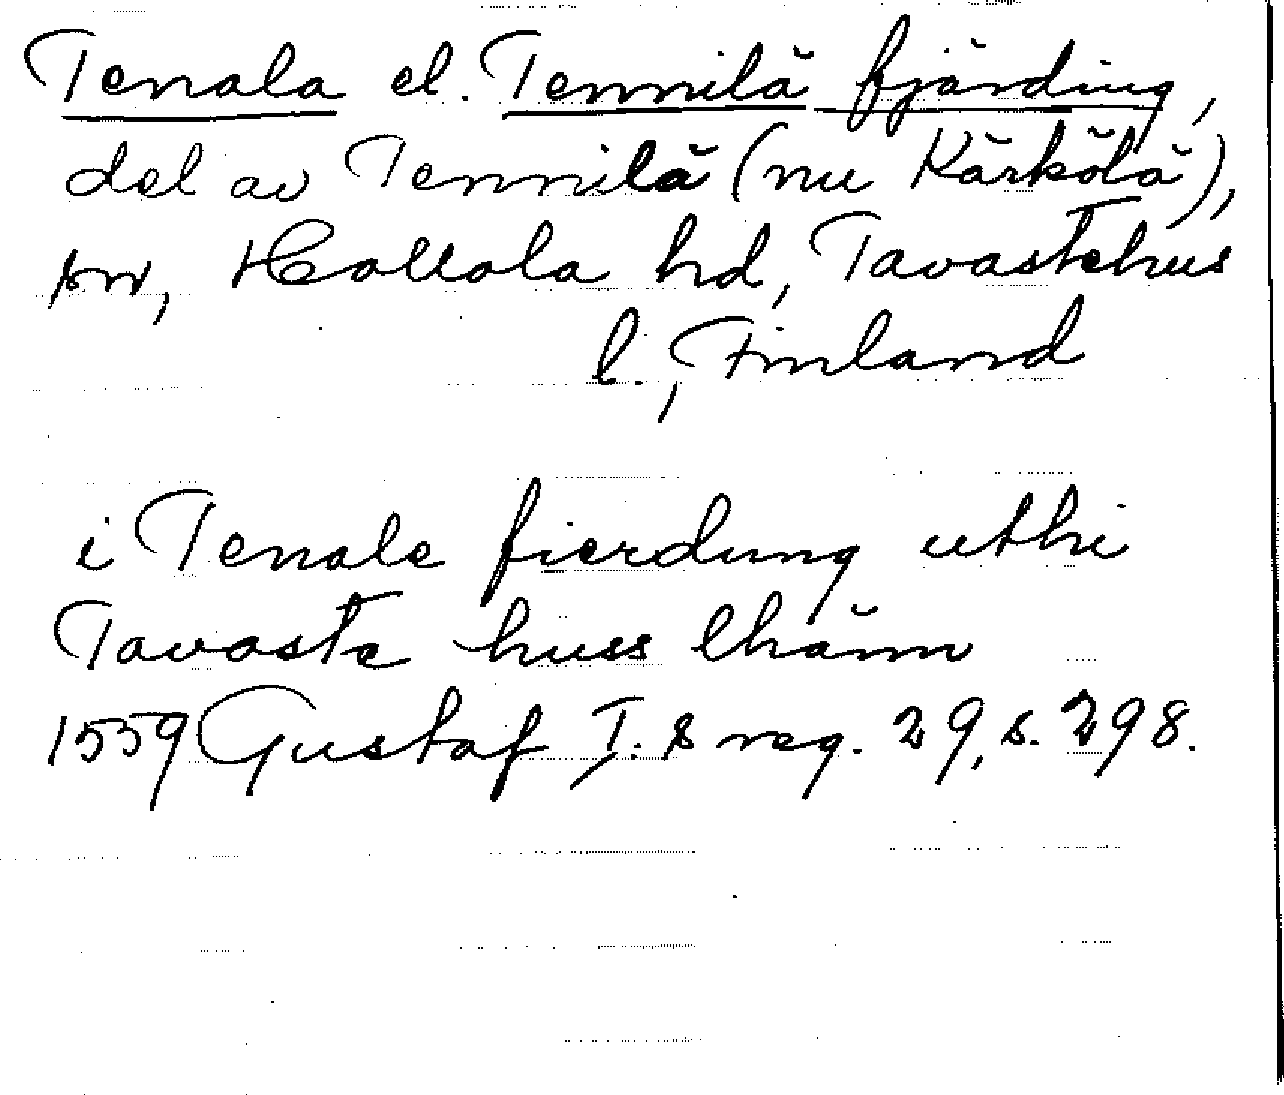 Tenala el. Tennilä fjärding,
del av Tennilä (nu Kärkölä),
sn, Hollola hd, Tavastehus
l., Finland
i Tenale fierdung uthi
Tavaste huss lhänn
1559 Gustaf I:s reg. 29, s. 298.